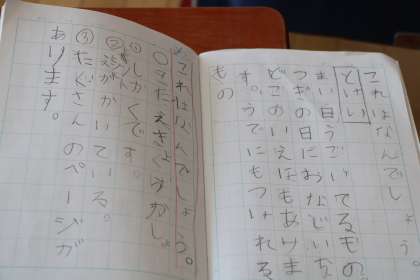 これはなんでしょう。
とけい
まい日うごいてるもの
つぎの日に
どこのいえはもありま
す。うでにもつけれる
もの
これはなんでしょう。
①しかくです。
ヒント
②えがかいている。
③たくさんのページが
あります。